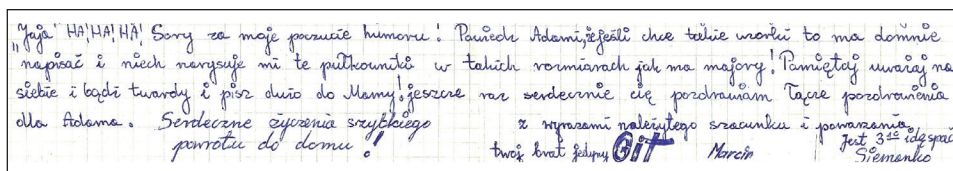 „Jaja" HA! HA! HA! Sory za moje poczucie humoru! Powiedz Adami, że jeśli chce takie worki to ma domnie
napisać i niech narysuje mi te pułkowniki w takich rozmiarach jak ma majory! Pamiętaj uważaj na
siebie i bądź twardy i pisz dużo do Mamy! jeszcze raz serdecznie cię pozdrawiam Łącze pozdrowienia
dla Adama. Serdeczne życzenia szybkiego z wyrazami należytego szacunku i poważania
powrotu do domu! twoj brat jedyny GIT Marcin jest 3¹⁰ idę spać
Siemanko